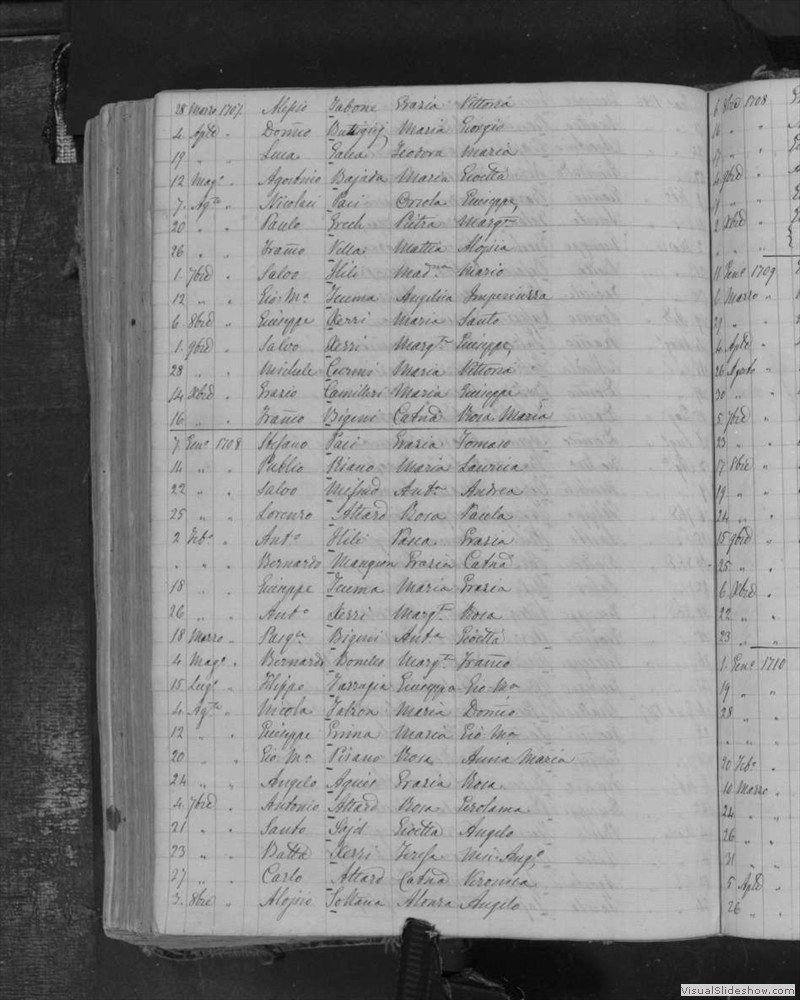 28 Marzo 1707 Alesio Fabone Grazia Vittoria
4 Aple „ Domco Buttigieg Maria Giorgio
19 „ „ Luca Galea Teodora Maria
12 Mago „ Agostino Bajada Maria Gioetta
7 Agto „ Nicolaci Paci Orsola Giuseppe
20 „ „ Paulo Grech Pietra Margta
26 „ „ Franco Villa Mattia Aloisia
1 7bre „ Salvo Hili Madna Mario
12 „ „ Gio Ma Zeuma Angelica Imperiuzza
6 8bre „ Giuseppe Xerri Maria Santo
1 9bre „ Salvo Xerri Margta Giuseppe
28 „ „ Michele Curmi Maria Vittoria
14 Xbre „ Grazio Camilleri Maria Giuseppe
16 „ „ Franco Bigeni Catna Rosa Maria
7 Geno 1708 Stefano Paci Grazia Tomaso
14 „ „ Publio Riano Maria Laurica
22 „ „ Salvo Mifsud Anta Andrea
25 „ „ Lorenzo Attard Rosa Paula
2 Febo „ Anto Hili Pasca Grazia
„ „ „ Bernardo Mangion Grazia Catna
18 „ „ Giuseppe Zeuma Maria Grazia
26 „ „ Anto Xerri Margta Rosa
18 Marzo „ Pasqle Bigeni Anta Gioetta
4 Mago „ Bernardo Bonello Margta Franco
15 Lugo „ Filippo Farrugia Giuseppa Gio Ma
4 Agto „ Nicola Falzon Maria Domco
12 „ „ Giuseppe Maria Gio Ma
20 „ „ Gio Ma Pisano Rosa Anna Maria
24 „ „ Angelo Aguis Grazia Rosa
4 7bre „ Antonio Attard Rosa Gerolama
21 „ „ Santo Gioetta Angelo
23 „ „ Batta Xerri Teresa Mic Ango
27 „ „ Carlo Attard Catna Veronica
3 8bre „ Aloisio Sultana Alvara Angelo
6 8bre 1708
16 „ „
17 „
4 9bre „
11 „ „
2 Xbre „
„ „
11 Geno 1709
6 Marzo „
29 „ „
4 Aple „
26 Agosto „
30 „ „
5 7bre „
23 „ „
17 8bre „
19 „ „
24 „ „
15 9bre „
25 „ „
6 Xbre „
22 „ „
23 „ „
1 Geno 1710
19 „ „
28 „ „
„ „ „
20 Febo „
10 Marzo „
24 „ „
26 „ „
31 „ „
5 Aple „
26 „ „
VisualSlideshow.com